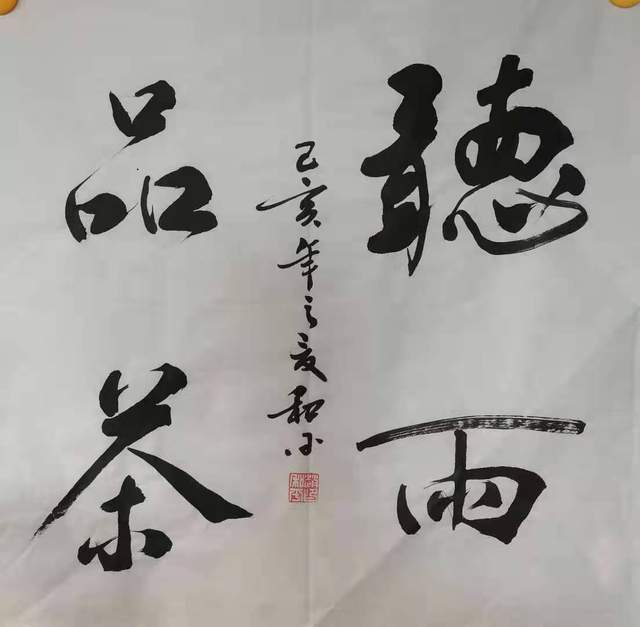 聽雨
品茶
己亥年之夏和小